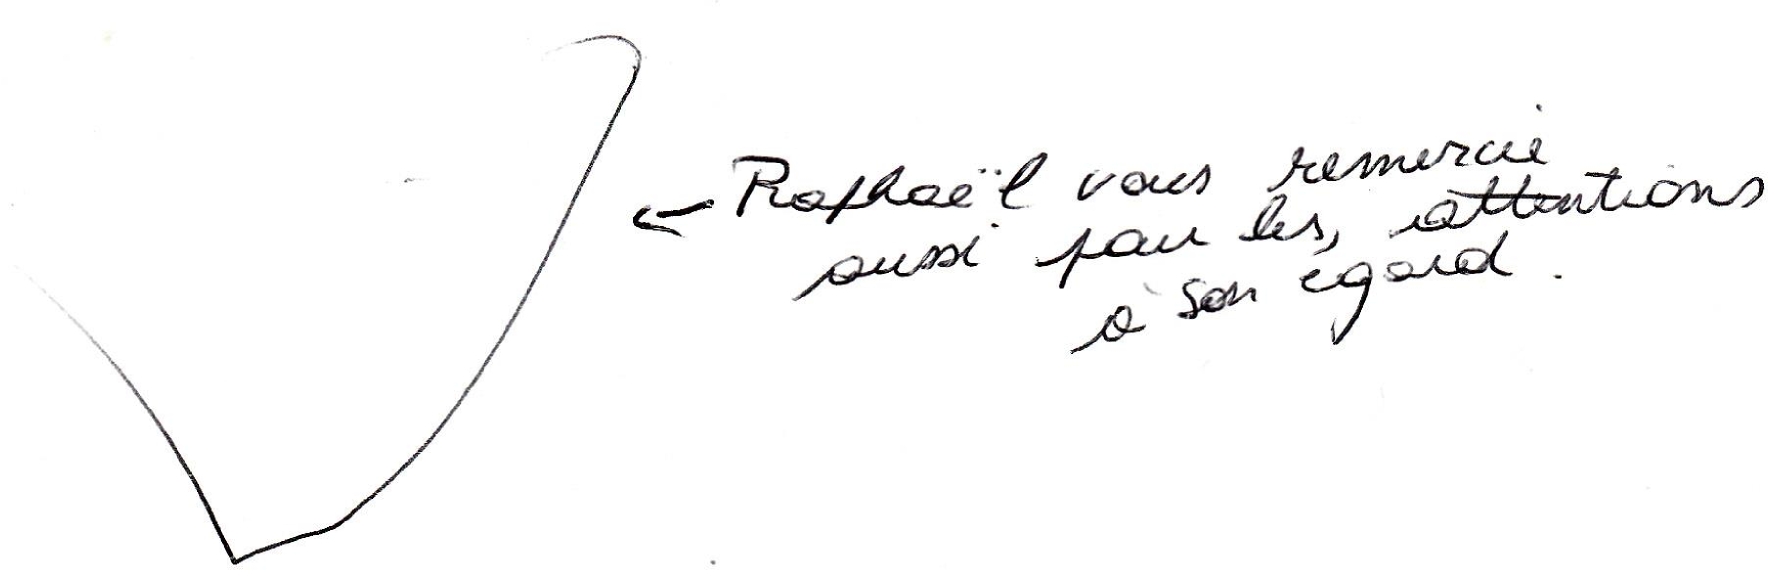 Raphaël vous remercie
aussi pour les, attentions
à son égard.